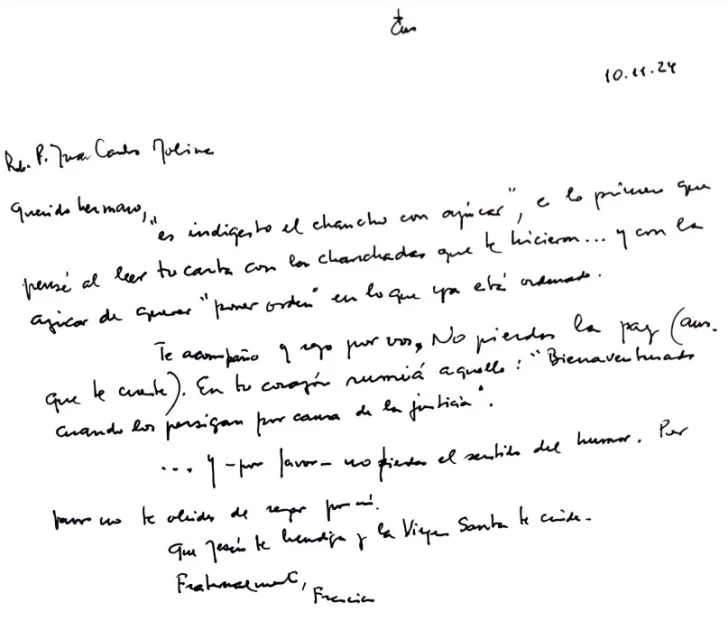 10.11.24
Rdo. P. Juan Carlos Molina
Querido hermano,
"es indigesto el chancho con azúcar", e lo primero que
pensé al leer tu carta con las chanchadas que te hicieron... y con la
azúcar de querer "poner orden" en lo que ya está ordenado.
Te acompaño y rezo por vos. No pierdas la paz (aun-
que te cueste). En tu corazón rumiá aquello: "Bienaventurados
cuando los persigan por causa de la justicia".
... y -por favor- no pierdas el sentido del humor. Por
favor no te olvides de rezar por mí.
Que Jesús te bendiga y la Virgen Santa te cuide.
Fraternalmente,
Francisco